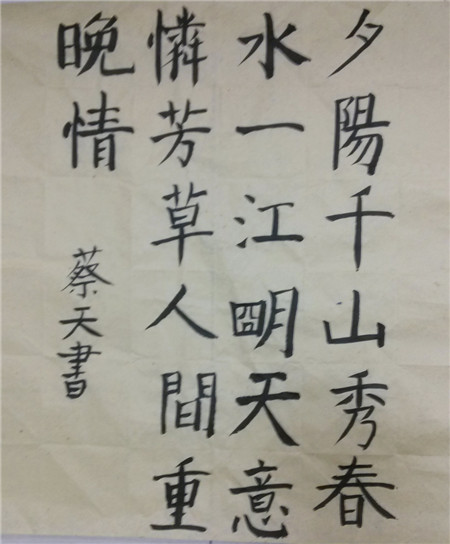 夕陽千山秀春
水一江朙天意
憐芳草人間重
晚情
蔡天書